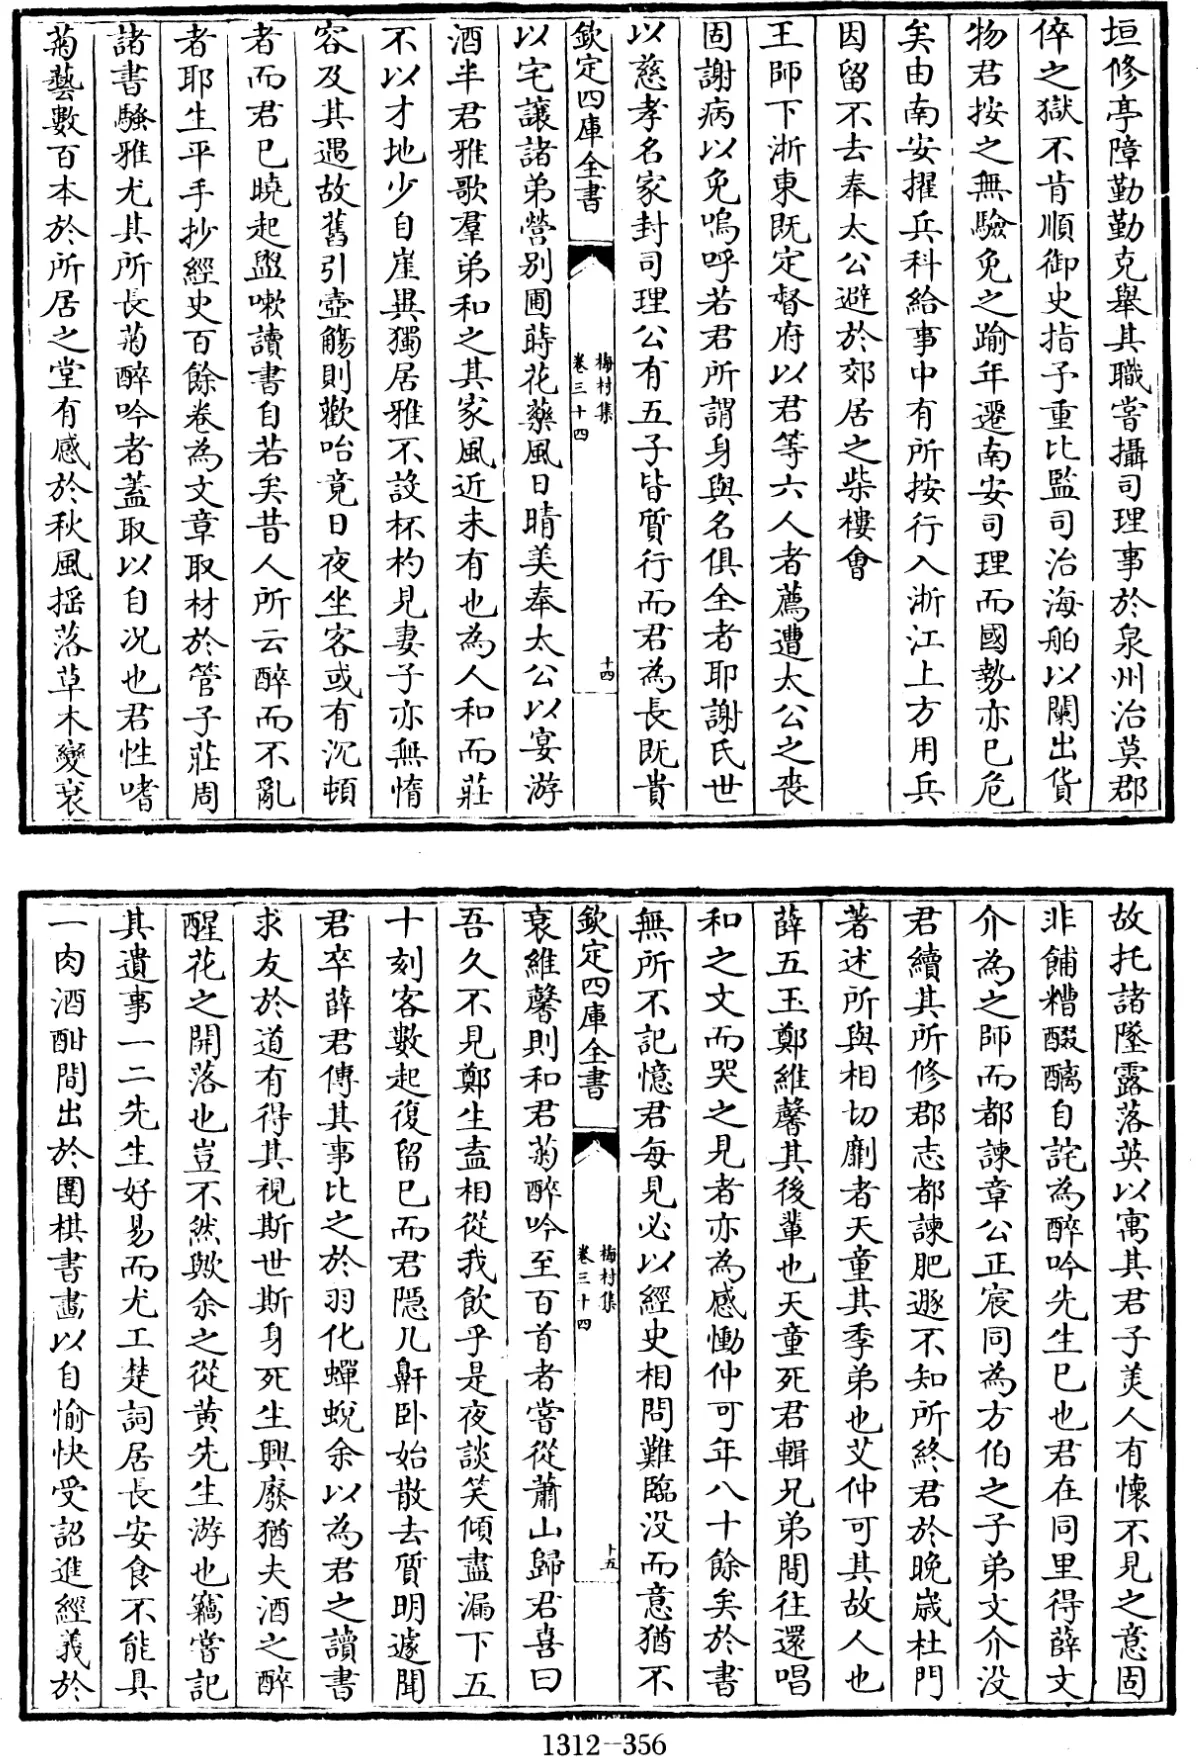 垣修亭障勤勤克舉其職嘗攝司理事於泉州治莫郡
倅之獄不肯順御史指予重比監司治海舶以闌出貨
物君按之無驗免之踰年遷南安司理而國勢亦已危
矣由南安擢兵科給事中有所按行入浙江上方用兵
因留不去奉太公避於郊居之柴樓會
王師下浙東既定督府以君等六人者薦遭太公之喪
固謝病以免嗚呼若君所謂身與名俱全者耶謝氏世
以慈孝名家封司理公有五子皆質行而君為長既貴
欽定四庫全書
梅村集
卷三十四
十四
以宅讓諸弟營別圃蒔花藥風日晴美奉太公以宴游
酒半君雅歌羣弟和之其家風近未有也為人和而莊
不以才地少自崖異獨居雅不設杯杓見妻子亦無惰
容及其遇故舊引壺觴則歡咍竟日夜坐客或有沉頓
者而君已曉起盥嗽讀書自若矣昔人所云醉而不亂
者耶生平手抄經史百餘卷為文章取材於管子莊周
諸書騷雅尤其所長菊醉吟者蓋取以自况也君性嗜
菊藝數百本於所居之堂有感於秋風揺落草木變衰
故托諸墜露落英以寓其君子美人有懷不見之意固
非餔糟醊醨自詫為醉吟先生已也君在同里得薛文
介為之師而都諫章公正宸同為方伯之子弟文介没
君續其所修郡志都諫肥遯不知所終君於晚歳杜門
著述所與相切劘者天童其季弟也艾仲可其故人也
薛五玉鄭維馨其後輩也天童死君輯兄弟間往還唱
和之文而哭之見者亦為感慟仲可年八十餘矣於書
無所不記憶君每見必以經史相問難臨没而意猶不
欽定四庫全書
梅村集
卷三十四
十五
衰維馨則和君菊醉吟至百首者嘗從蕭山歸君喜曰
吾久不見鄭生盍相從我飲乎是夜談笑傾盡漏下五
十刻客數起復留已而君隱几鼾卧始散去質明遽聞
君卒薛君傳其事比之於羽化蟬蛻余以為君之讀書
求友於道有得其視斯世斯身死生興廢猶夫酒之醉
醒花之開落也豈不然歟余之從黃先生游也竊嘗記
其遺事一二先生好易而尤工楚詞居長安食不能具
一肉酒酣間出於圍棋書畫以自愉快受詔進經義於
1312-356